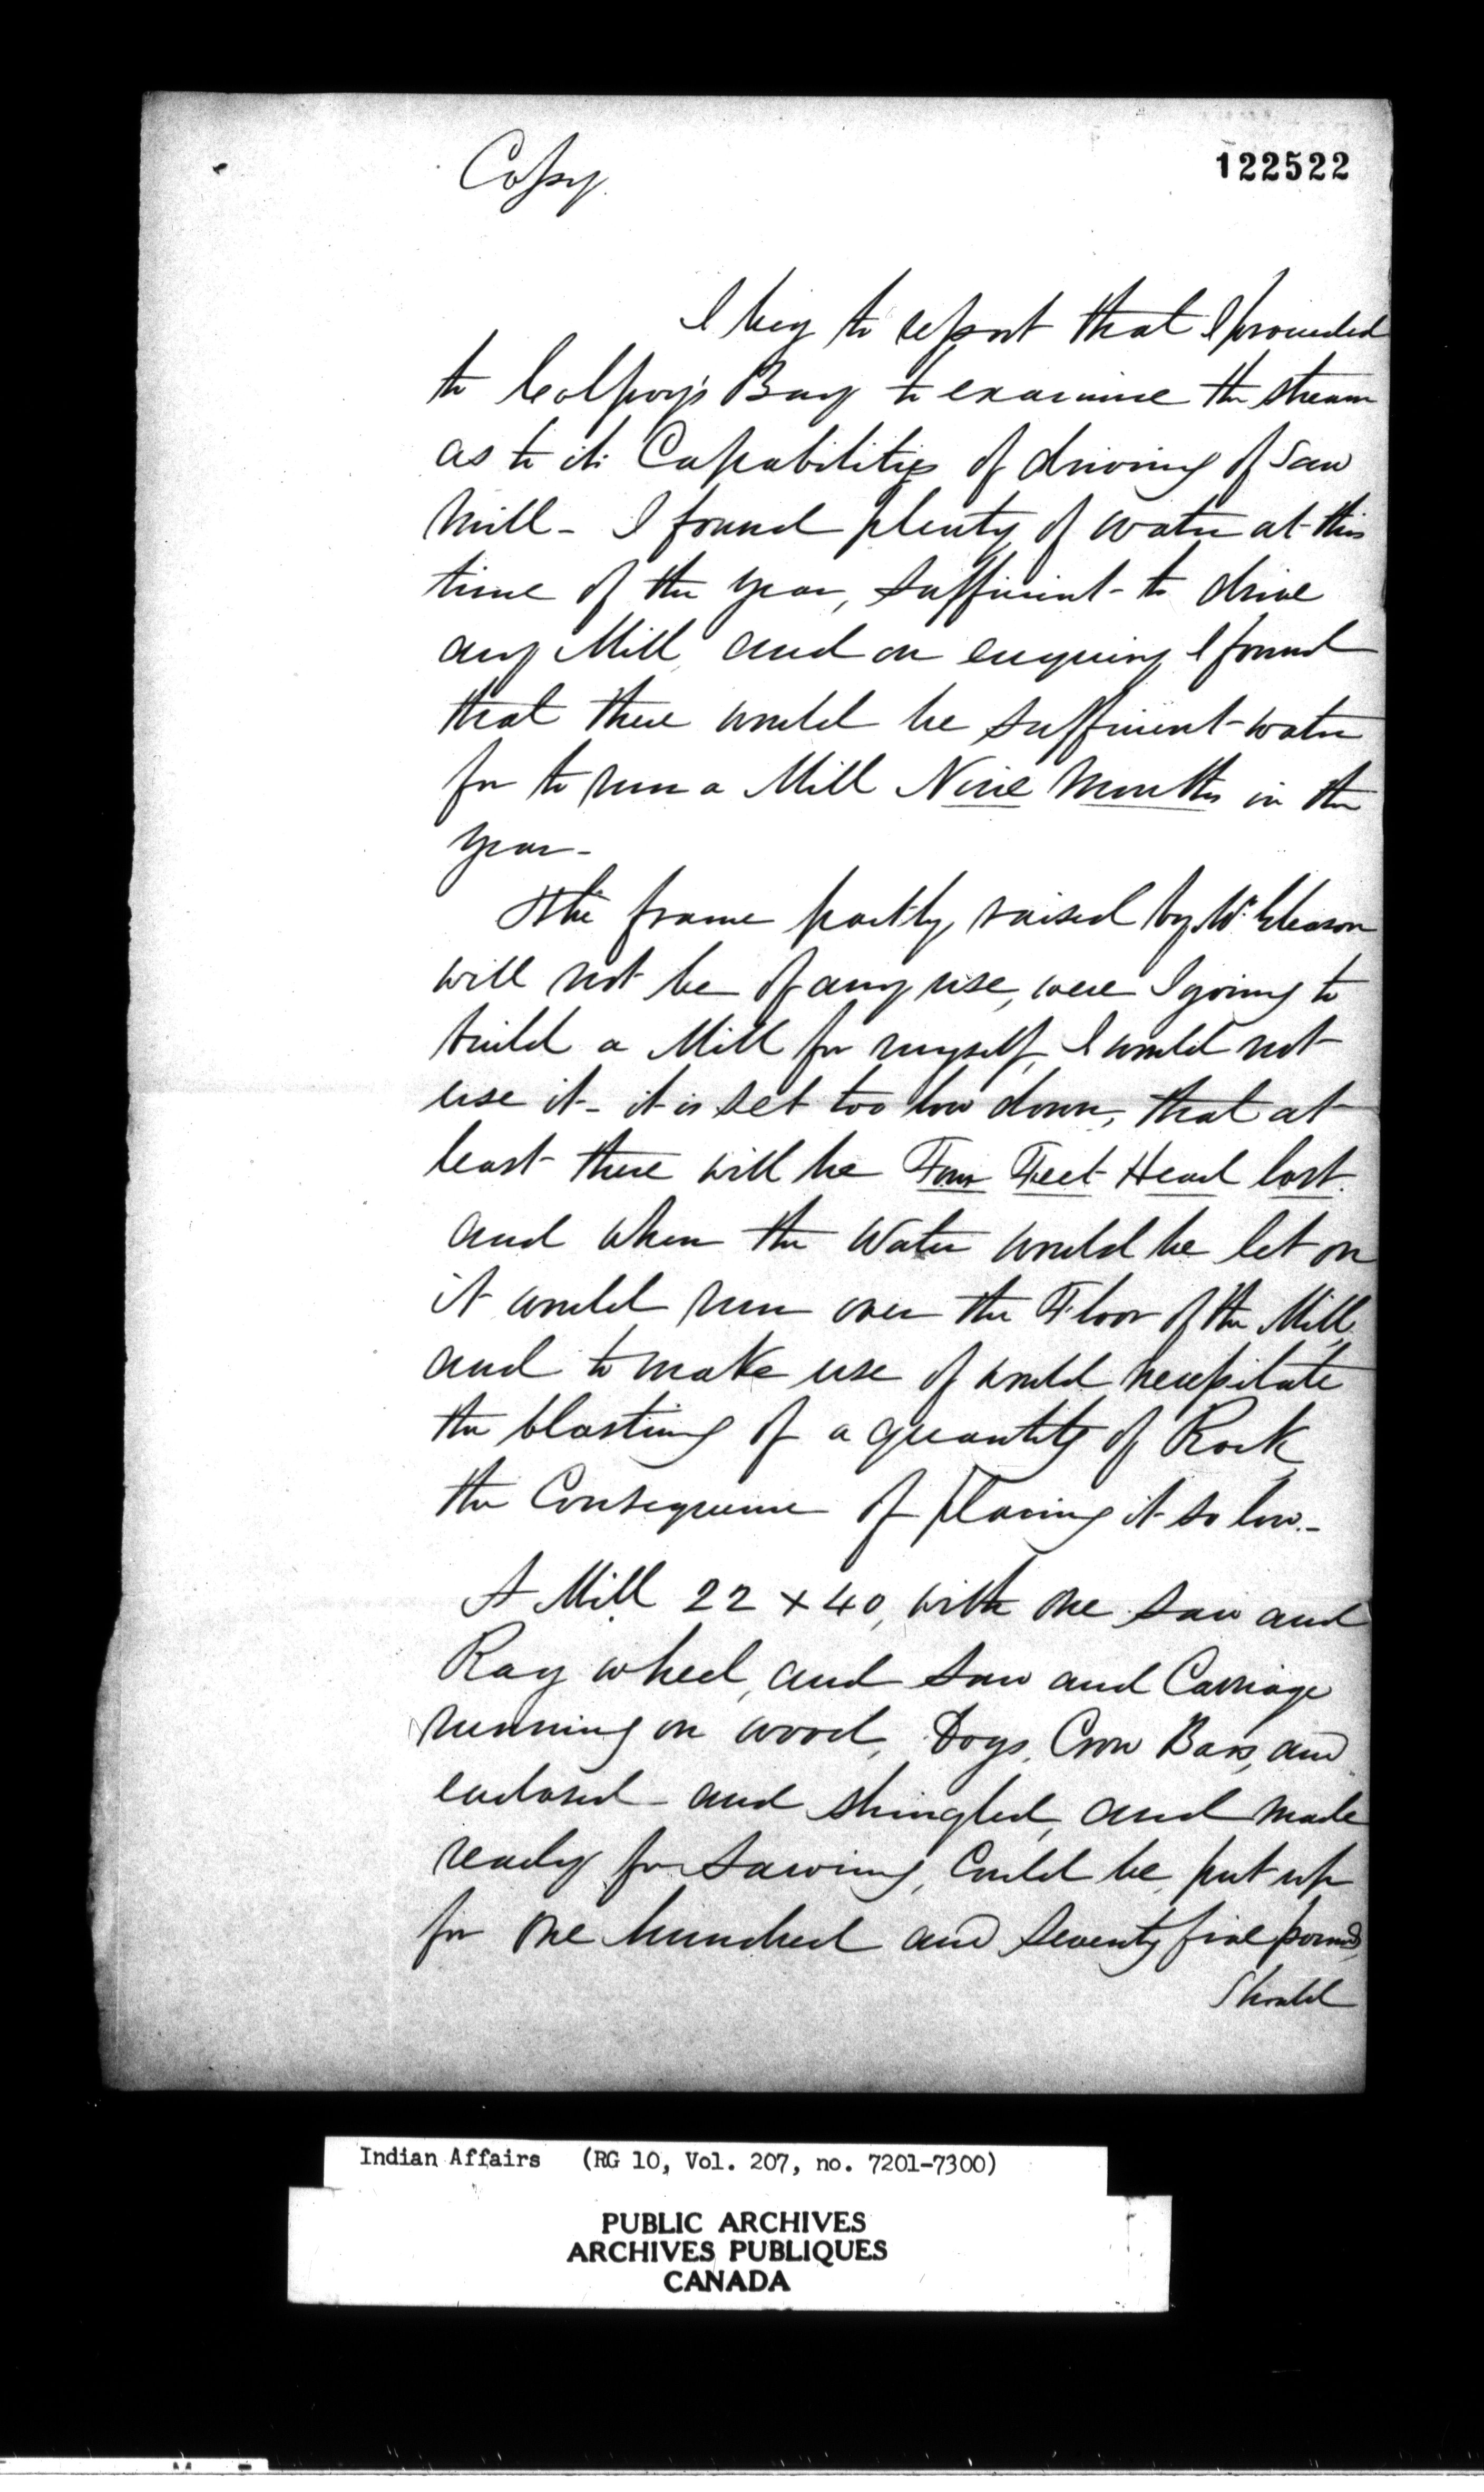 Copy.
122522
I beg to report that I proceeded
to Colpoy's Bay to examine the stream
as to its Capabilities of driving of Saw
Mill - I found plenty of water at this
time of the year, sufficient to drive
any Mill, and on enquiring I found
that there would be sufficient water
for to run a Mill Nine Months in the
year -
The frame partly raised by Mr Gleason
will not be of any use, were I going to
build a Mill for myself, I would not
use it - it is set too low down, that at
least there will be Four Feet Head lost.
and when the Water would be let on
it would run over the Floor of the Mill,
and to make use of would necessitate
the blasting of a quantity of Rock,
the Consequence of placing it so low. -
A Mill 22 x 40, with one saw and
Rag wheel, and saw and Carriage
running on wood, Dogs, Crow Bars, and
enclosed - and shingled, and made
ready for sawing, Could be put up
for one hundred and seventy five pounds,
Should
Indian Affairs (RG 10, Vol. 207, no. 7201-7300)
PUBLIC ARCHIVES
ARCHIVES PUBLIQUES
CANADA